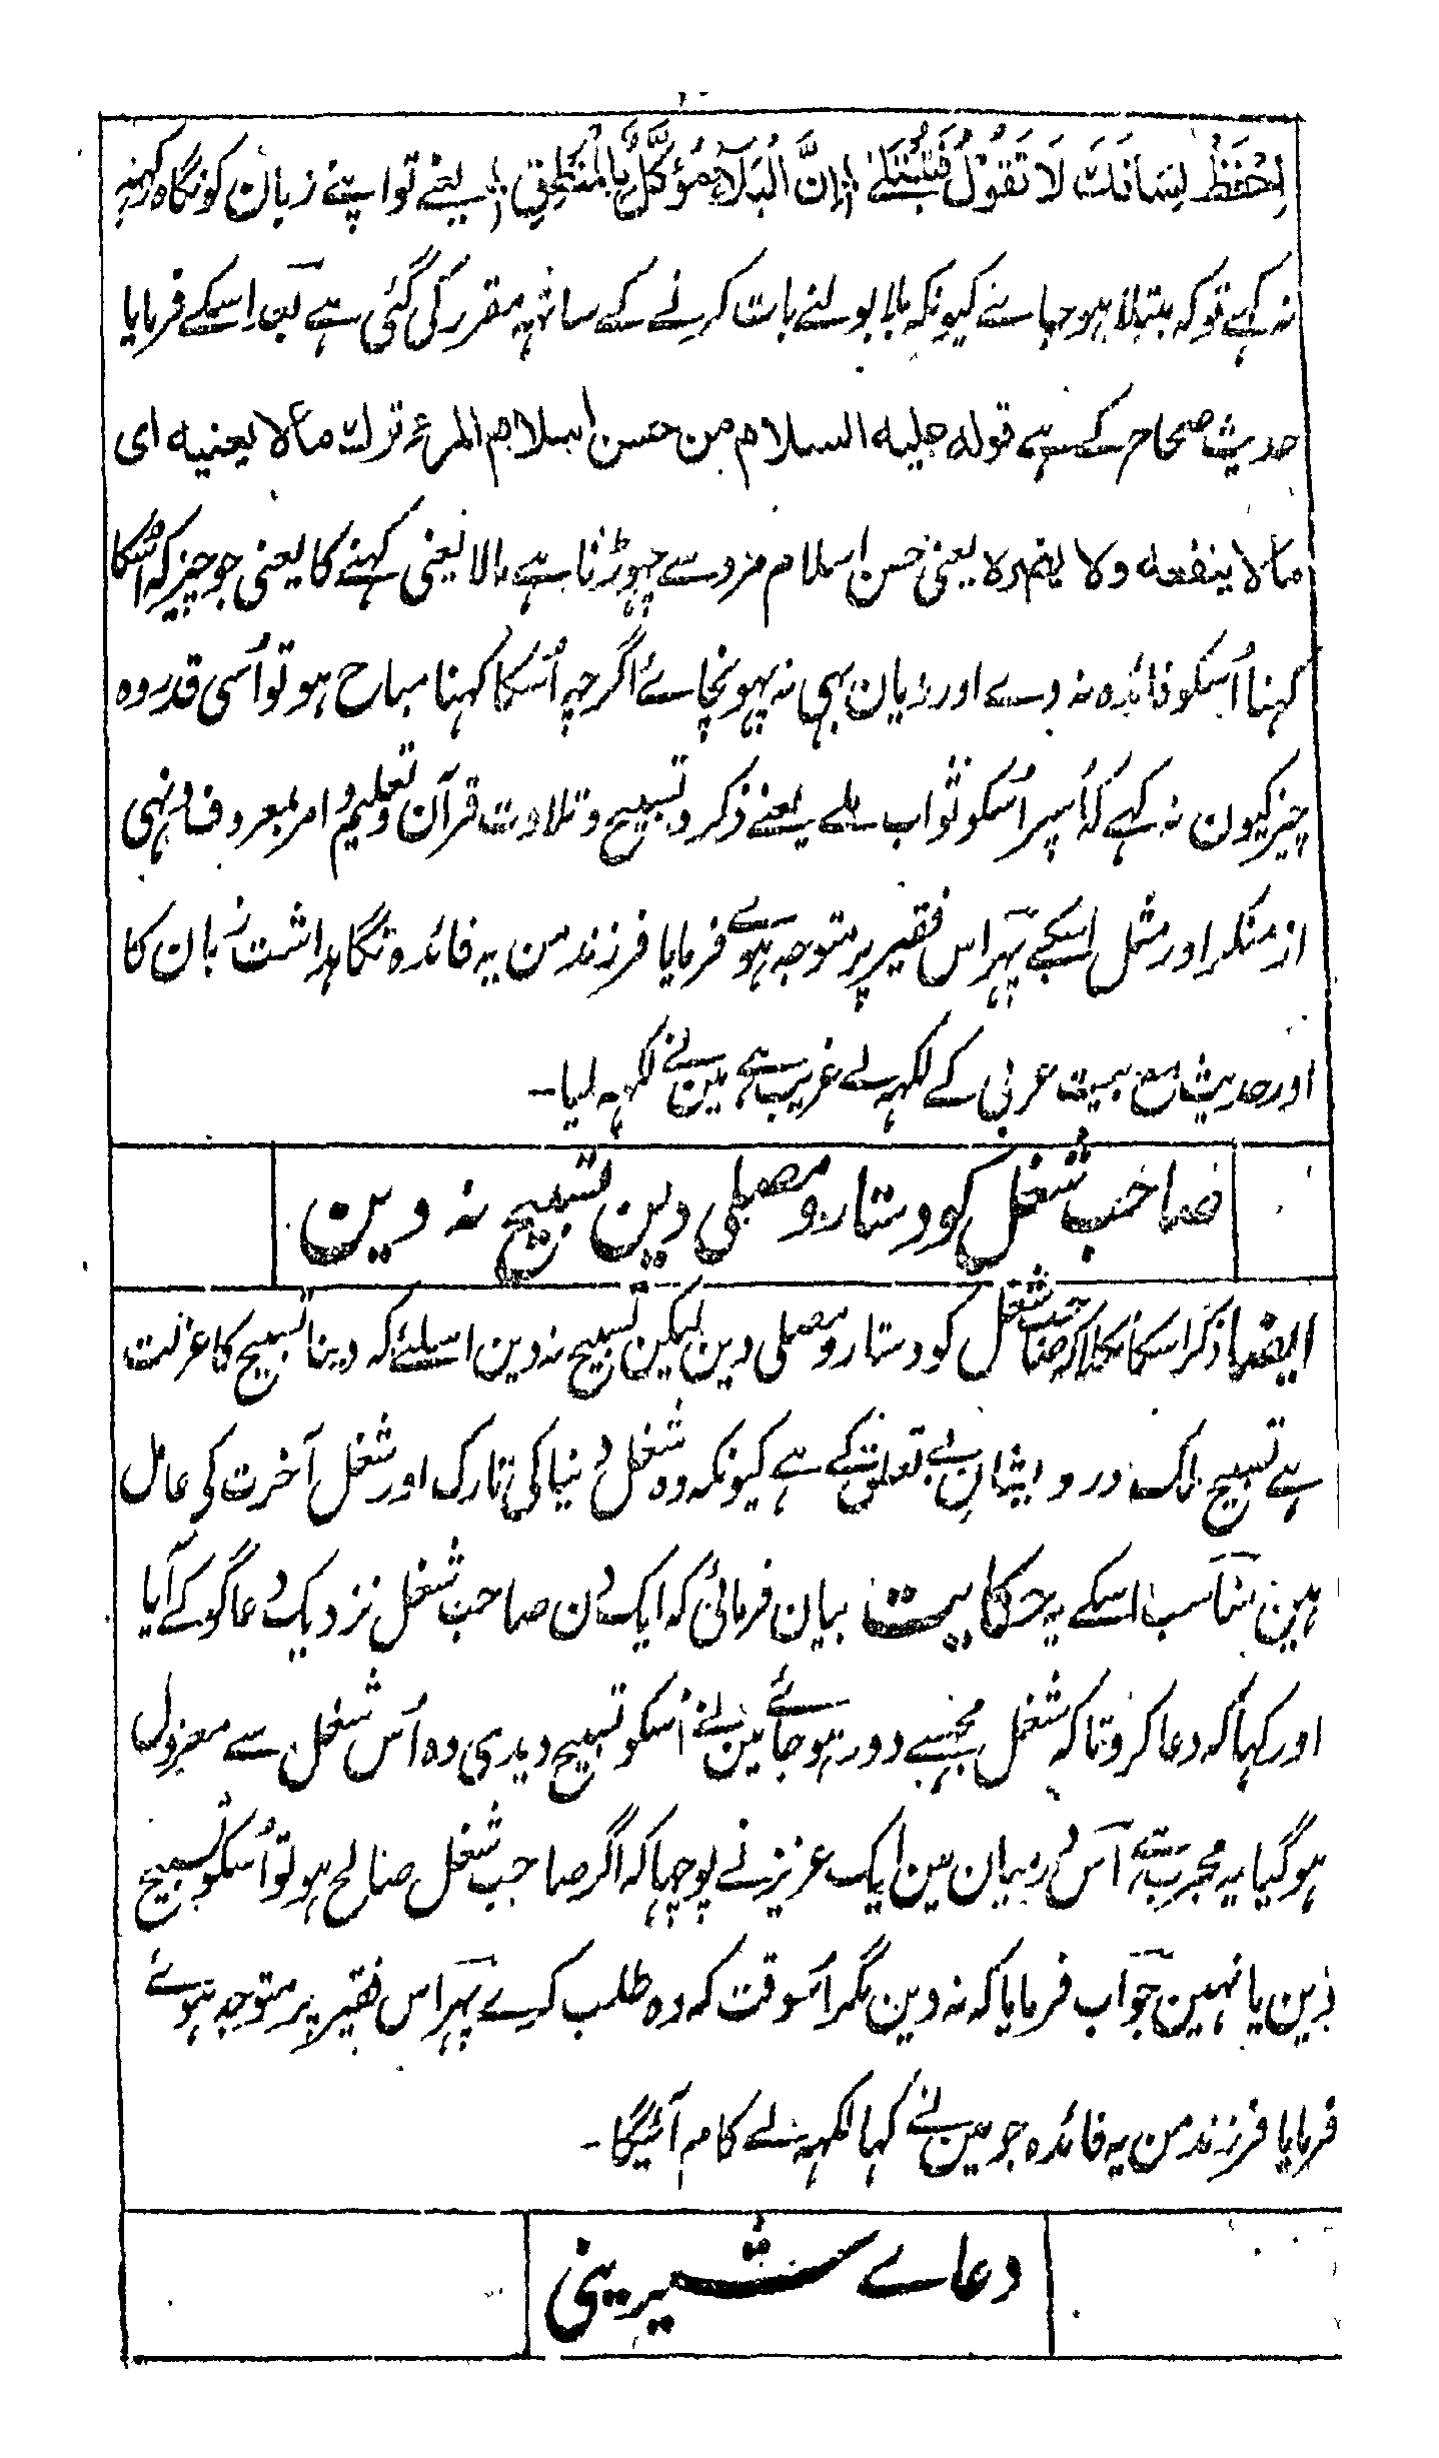 اِحْفَظْ لِسَانَكَ لَا تَقُوْلُ فَتُبْتَلٰے اِنَّ الْبَلَآءَ مُؤَكَّلٌ بِالْمَنْطِقِ یعنے تو اپنے زبان کو نگاہ رکہنہ
نہ کہے تو کہ مبتلا ہوجاے کیونکہ بلا بولنے بات کرنے کے ساتہہ مقرر کی گئی ہے بعد اسکے فرمایا
حدیث صحاح کے ہے قوله علیه السلام من حسن اسلام المرء ترك مالا یعنیه ای
مالا ینفعه ولا یضره یعنی حسن اسلام مرد سے چہوڑنا ہے مالا یعنی کہنے کا یعنی جو چیز کہ اسکا
کہنا اُسکو فائدہ نہ دے اور زیان بہی نہ پہونچاے اگرچہ اُسکا کہنا مباح ہو تو اُسی قدر وہ
چیز کیون نہ کہے کہ اُسپر اُسکو ثواب ملے یعنے ذکر و تسبیح و تلاوت قرآن و تعلیم و امر بمعروف و نہی
از منکر اور مثل اسکے پہر اس فقیر پر متوجہ ہوے فرمایا فرزند من یہ فائدہ نگاہداشت زبان کا
اور حدیث مع بیت عربی کے لکہہ لے غریب ہے مین نے لکہہ لیا۔
صاحب شغل کو دستار و مصلی دین تسبیح نہ دین
ایضًا ذکر اسکا نکلا کہ صاحب شغل کو دستار و مصلی دین لیکن تسبیح نہ دین اسلئے کہ دینا تسبیح کا عزلت
ہے تسبیح ملک درویشان بے تعلق کے ہے کیونکہ وہ شغل دنیا کی تارک اور شغل آخرت کی عامل
ہین مناسب اسکے یہ حکایت بیان فرمائی کہ ایک دن صاحب شغل نزدیک دعاگو کے آیا
اور کہا کہ دعا کرو تاکہ شغل مجہسے دور ہوجاے مین نے اُسکو تسبیح دیدی وہ اُس شغل سے معزول
ہوگیا یہ مجرب ہے اس درمیان مین ایک عزیز نے پوچہا کہ اگر صاحب شغل صالح ہو تو اُسکو تسبیح
دین یا نہین جواب فرمایا کہ نہ دین مگر اُسوقت کہ وہ طلب کرے پہر اس فقیر پر متوجہ ہوے
فرمایا فرزند من یہ فائدہ جو مین نے کہا لکہہ لے کام آئیگا۔
دعاے شیرینی